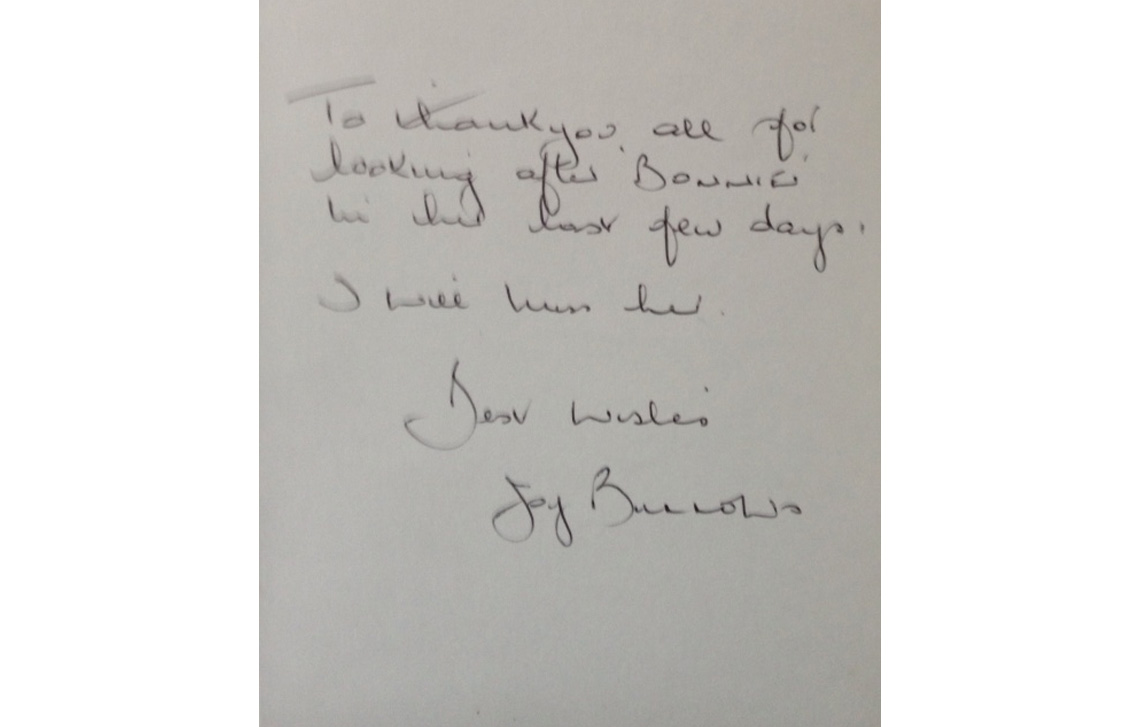 To thankyou all for
looking after Bonnie
in her last few days.
I will miss her.
Best wishes
Joy Burrows